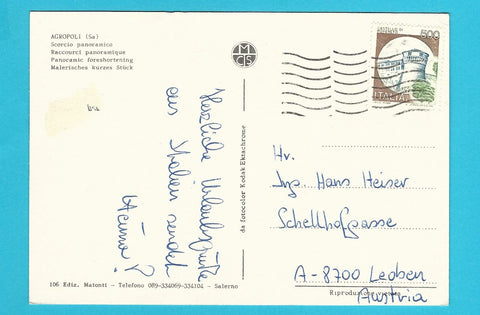 AGROPOLI (Sa)
Scorcio panoramico
Raccourci panoramique
Panoramic foreshortening
Malerisches kurzes Stück
MCS
500
ITALIA
Herzliche Urlaubsgrüße
aus Italien sendet
da fotocolor Kodak Ektachrome
Hr.
Ing. Hans Heiser
Schellhofgasse
A-8700 Leoben
Austria
106 Ediz. Matonti - Telefono 089-334069-334104 - Salerno
Riproduzione vietata